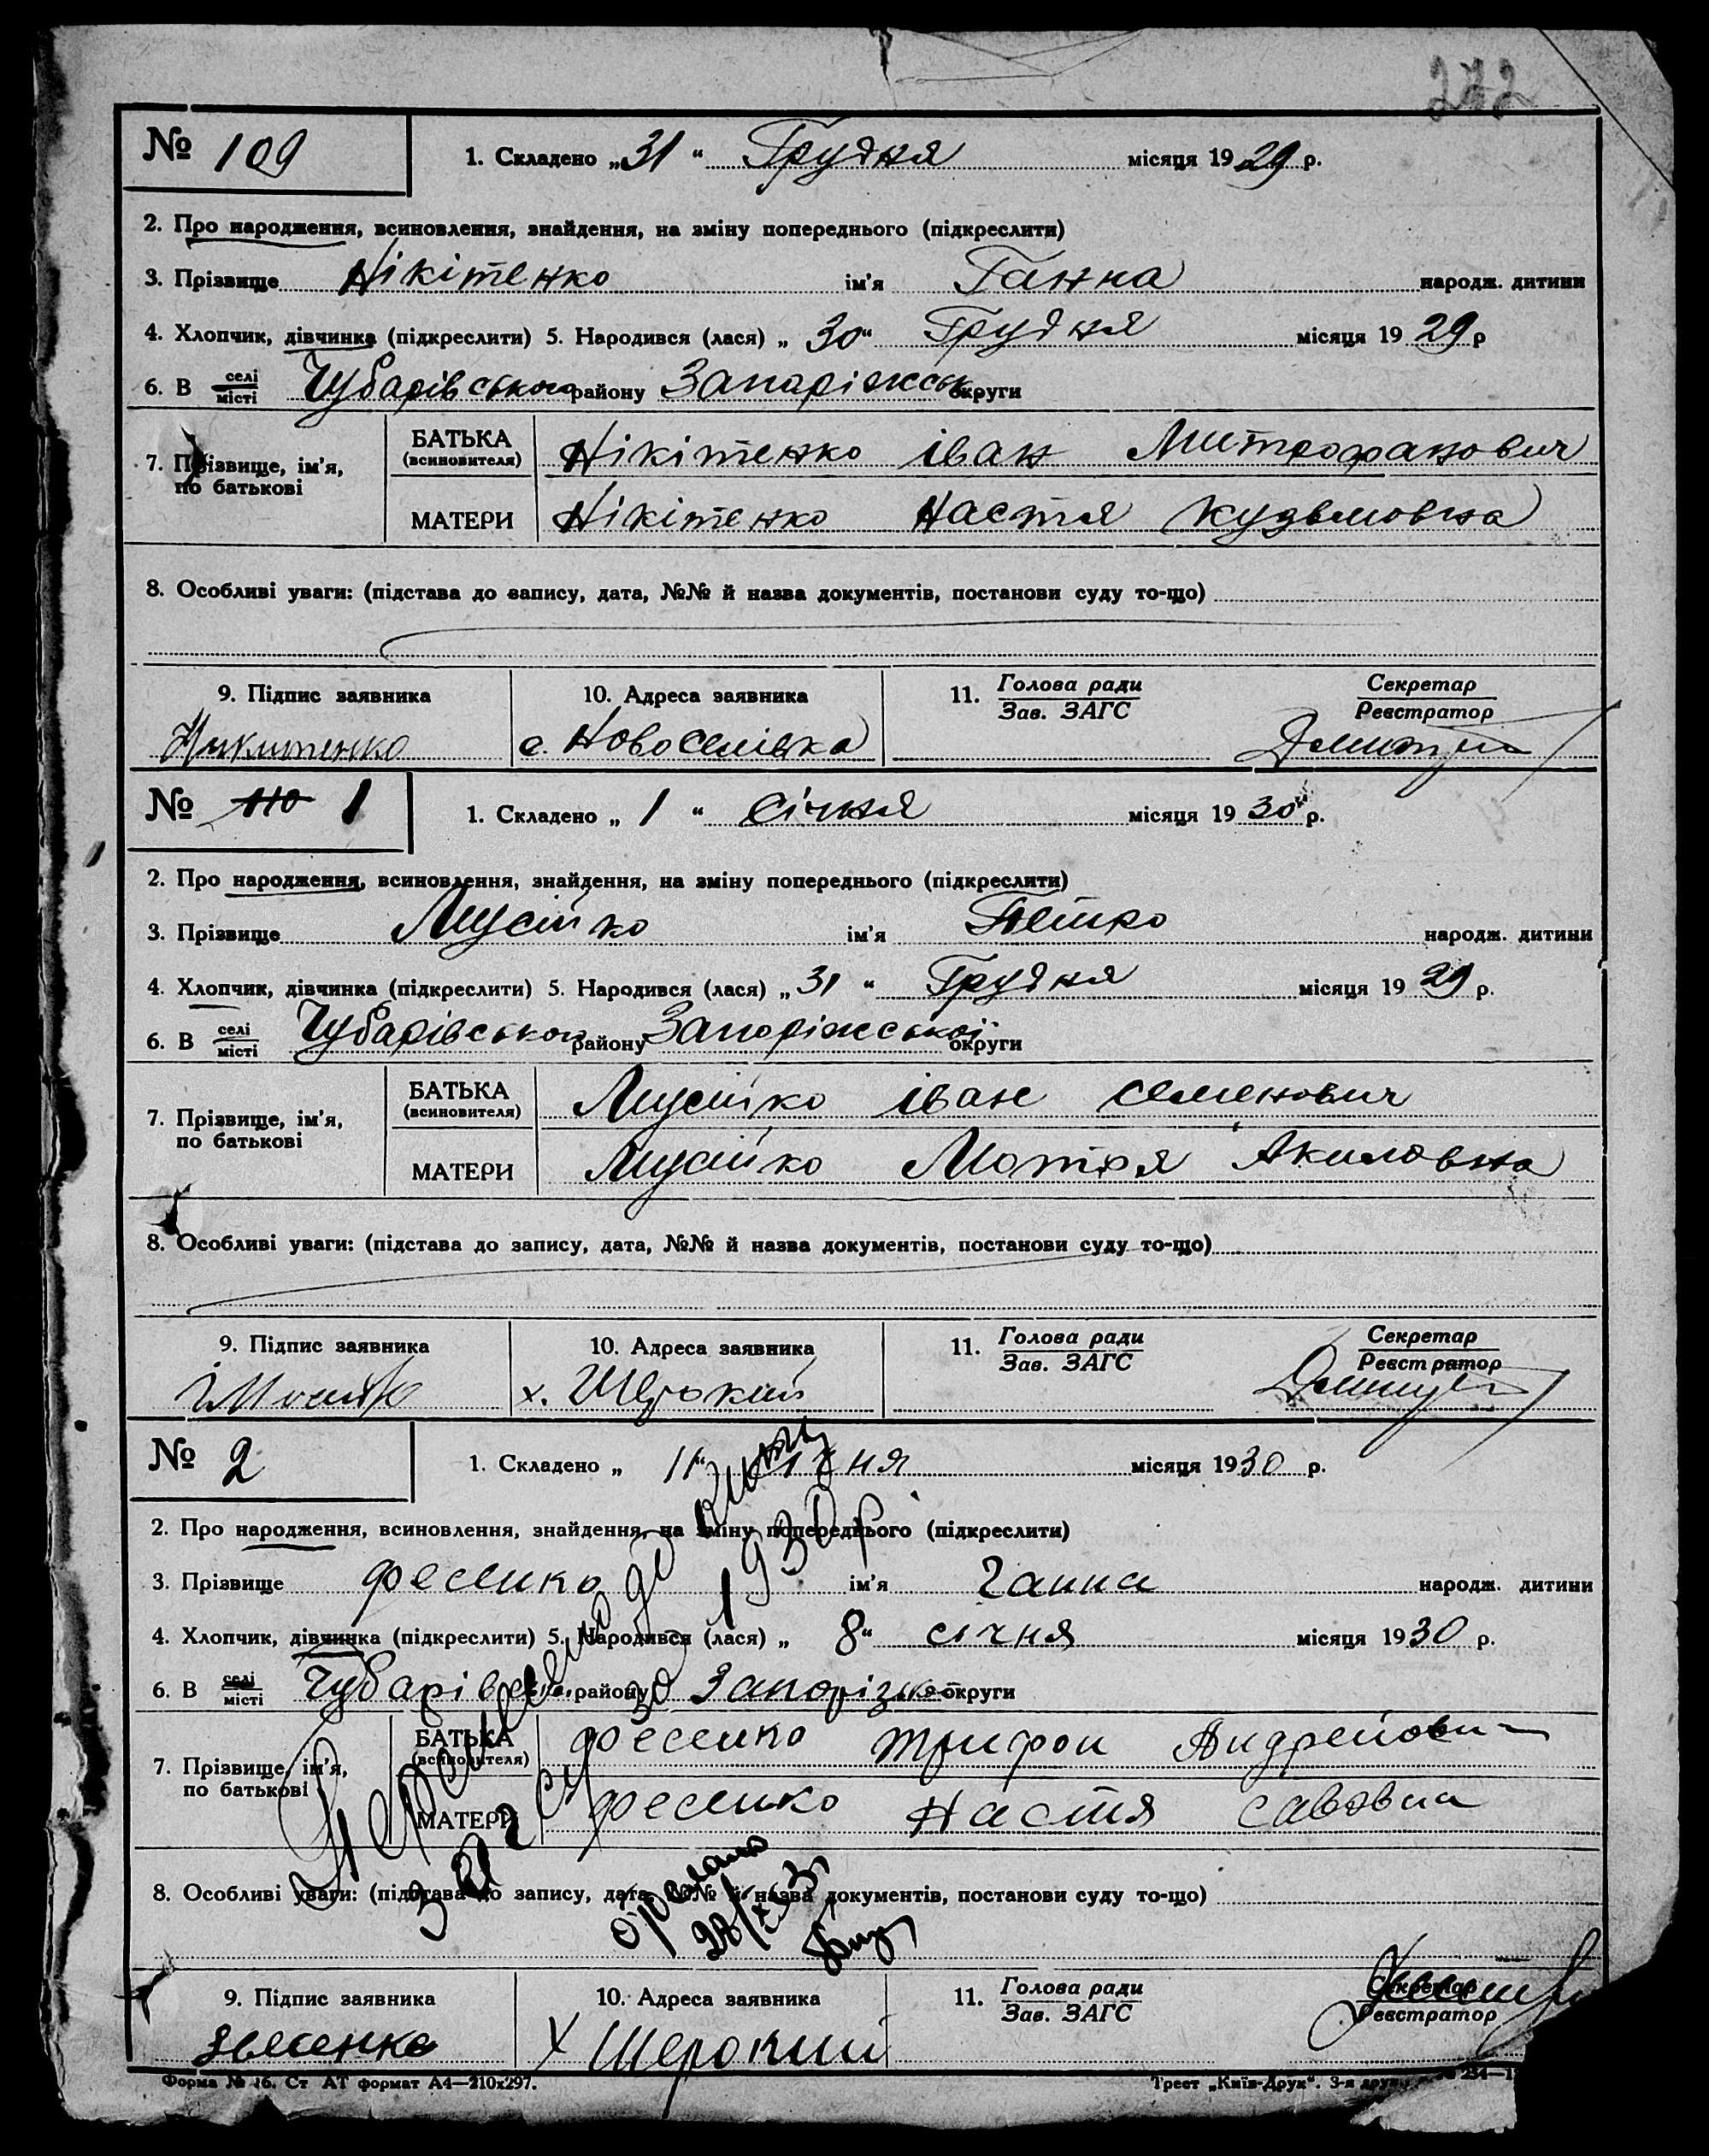 272
№ 109
1. Складено „31“ Грудня місяця 1929 р.
2. Про народження, всиновлення, знайдення, на зміну попереднього (підкреслити)
3. Прізвище Нікітенко ім'я Ганна народж. дитини
4. Хлопчик, дівчинка (підкреслити) 5. Народився (лася) „30“ Грудня місяця 1929 р
6. В селі місті Чубарівського району Запоріжськ округи
7. Прізвище, ім'я, по батькові
БАТЬКА (всиновителя) Нікітенко іван Митрофанович
МАТЕРИ Нікітенко Настя Кузьмовна
8. Особливі уваги: (підстава до запису, дата, №№ й назва документів, постанови суду то-що)
9. Підпис заявника 10. Адреса заявника 11. Голова ради Зав. ЗАГС Секретар Реєстратор
Никитенко с. Новоселівка
№ 110 1
1. Складено „1“ Січня місяця 1930 р.
2. Про народження, всиновлення, знайдення, на зміну попереднього (підкреслити)
3. Прізвище Мусійко ім'я Петро народж. дитини
4. Хлопчик, дівчинка (підкреслити) 5. Народився (лася) „31“ Грудня місяця 1929 р.
6. В селі місті Чубарівського району Запоріжської округи
7. Прізвище, ім'я, по батькові
БАТЬКА (всиновителя) Мусійко іван Семенович
МАТЕРИ Мусійко Мотря Акиловна
8. Особливі уваги: (підстава до запису, дата, №№ й назва документів, постанови суду то-що)
9. Підпис заявника 10. Адреса заявника 11. Голова ради Зав. ЗАГС Секретар Реєстратор
х. Широкий
№ 2
1. Складено „11“ січня місяця 1930 р.
2. Про народження, всиновлення, знайдення, на зміну попереднього (підкреслити)
3. Прізвище Фесенко ім'я Ганна народж. дитини
4. Хлопчик, дівчинка (підкреслити) 5. Народився (лася) „8“ січня місяця 1930 р.
6. В селі місті Чубарівськ. району Запорізько округи
7. Прізвище, ім'я, по батькові
БАТЬКА (всиновителя) Фесенко Трифон Андрейович
МАТЕРИ Фесенко Настя Савовна
8. Особливі уваги: (підстава до запису, дата, №№ й назва документів, постанови суду то-що)
до книги
за 1930 р
9. Підпис заявника 10. Адреса заявника 11. Голова ради Зав. ЗАГС Секретар Реєстратор
Х Шерокий
Форма № 16. Ст АТ формат А4—210х297.
Трест „Київ-Друк“. 3-я друк 254—1